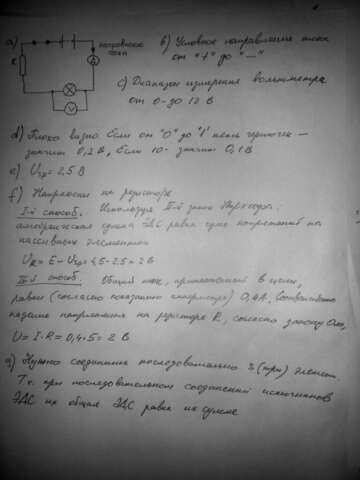 a)
R
A
V
направление
тока
b) Условное направление тока
от "+" до "—"
c) Диапазон измерения вольтметра
от 0 до 12 В
d) Плохо видно. Если от "0" до "1" пять черточек —
значит 0,2 В, если 10 - значит 0,1 В
e) = 2,5 В
f) Напряжение на резисторе
I-й способ. Используя II-й закон Кирхгофа:
алгебраическая сумма ЭДС равна сумме напряжений на
пассивных элементах
= 4,5 - 2,5 = 2 В
II-й способ. Общий ток, приложенный в цепи,
равен (согласно показанию амперметра) 0,4 А. Соответственно
падение напряжения на резисторе R, согласно закону Ома,
U = I · R = 0,4 · 5 = 2 В
g) Нужно соединить последовательно 3 (три) элемент.
Т.к. при последовательном соединении источников
ЭДС их общая ЭДС равна их сумме